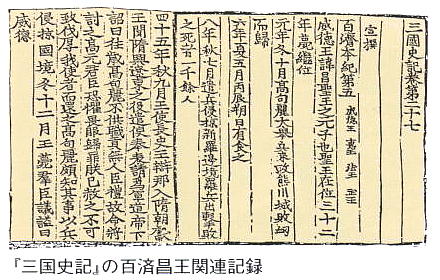 三國史記卷第二十七
宣撰
百濟本紀第五 威德王 惠王 法王 武王
威德王諱昌聖王之元子也聖王在位三十二
年薨繼位
元年冬十月高句麗大擧兵來攻熊川城敗衂
而歸
六年夏五月丙辰朔日有食之
八年秋七月遣兵侵掠新羅邊境羅兵出擊敗
之死者一千餘人
四十五年秋九月王使長史王辯那入隋朝獻
王聞隋興遼東之役遣使奉表請爲軍道帝下
詔曰往歲高句麗不供職貢無人臣禮故命將
討之高元君臣恐懼畏服歸罪朕已赦之不可
致伐厚我使者而還之高句麗頗知其事以兵
侵掠國境冬十二月王薨羣臣議諡曰
威德
『三国史記』の百済昌王関連記録